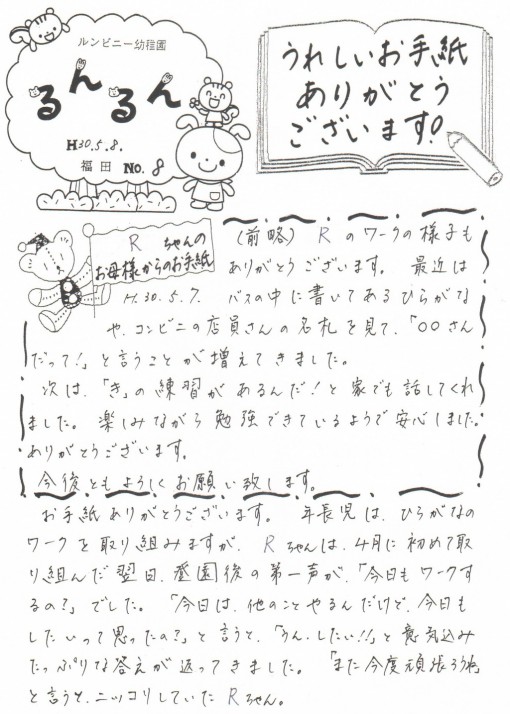 ルンビニー幼稚園
るんるん
H30.5.8.
福田 No.8
うれしいお手紙
ありがとう
ございます!
R ちゃんの
お母様からのお手紙
H.30.5.7.
(前略) R のワークの様子も
ありがとうございます。 最近は
バスの中に書いてあるひらがな
や、コンビニの店員さんの名札を見て、「〇〇さん
だって!」と言うことが増えてきました。
次は、「き」の練習があるんだ!と家でも話してくれ
ました。楽しみながら勉強できているようで安心しました。
ありがとうございます。
今後ともよろしくお願い致します。
お手紙ありがとうございます。 年長児は、ひらがなの
ワークを取り組みますが、Rちゃんは、4月に初めて取
り組んだ翌日、登園後の第一声が、「今日もワークす
るの?」でした。「今日は、他のことやるんだけど、今日も
したいって思ったの?」と言うと、「うん、したい!!」と意気込み
たっぷりな答えが返ってきました。「また今度頑張ろうね」
と言うと、ニッコリしていたRちゃん。